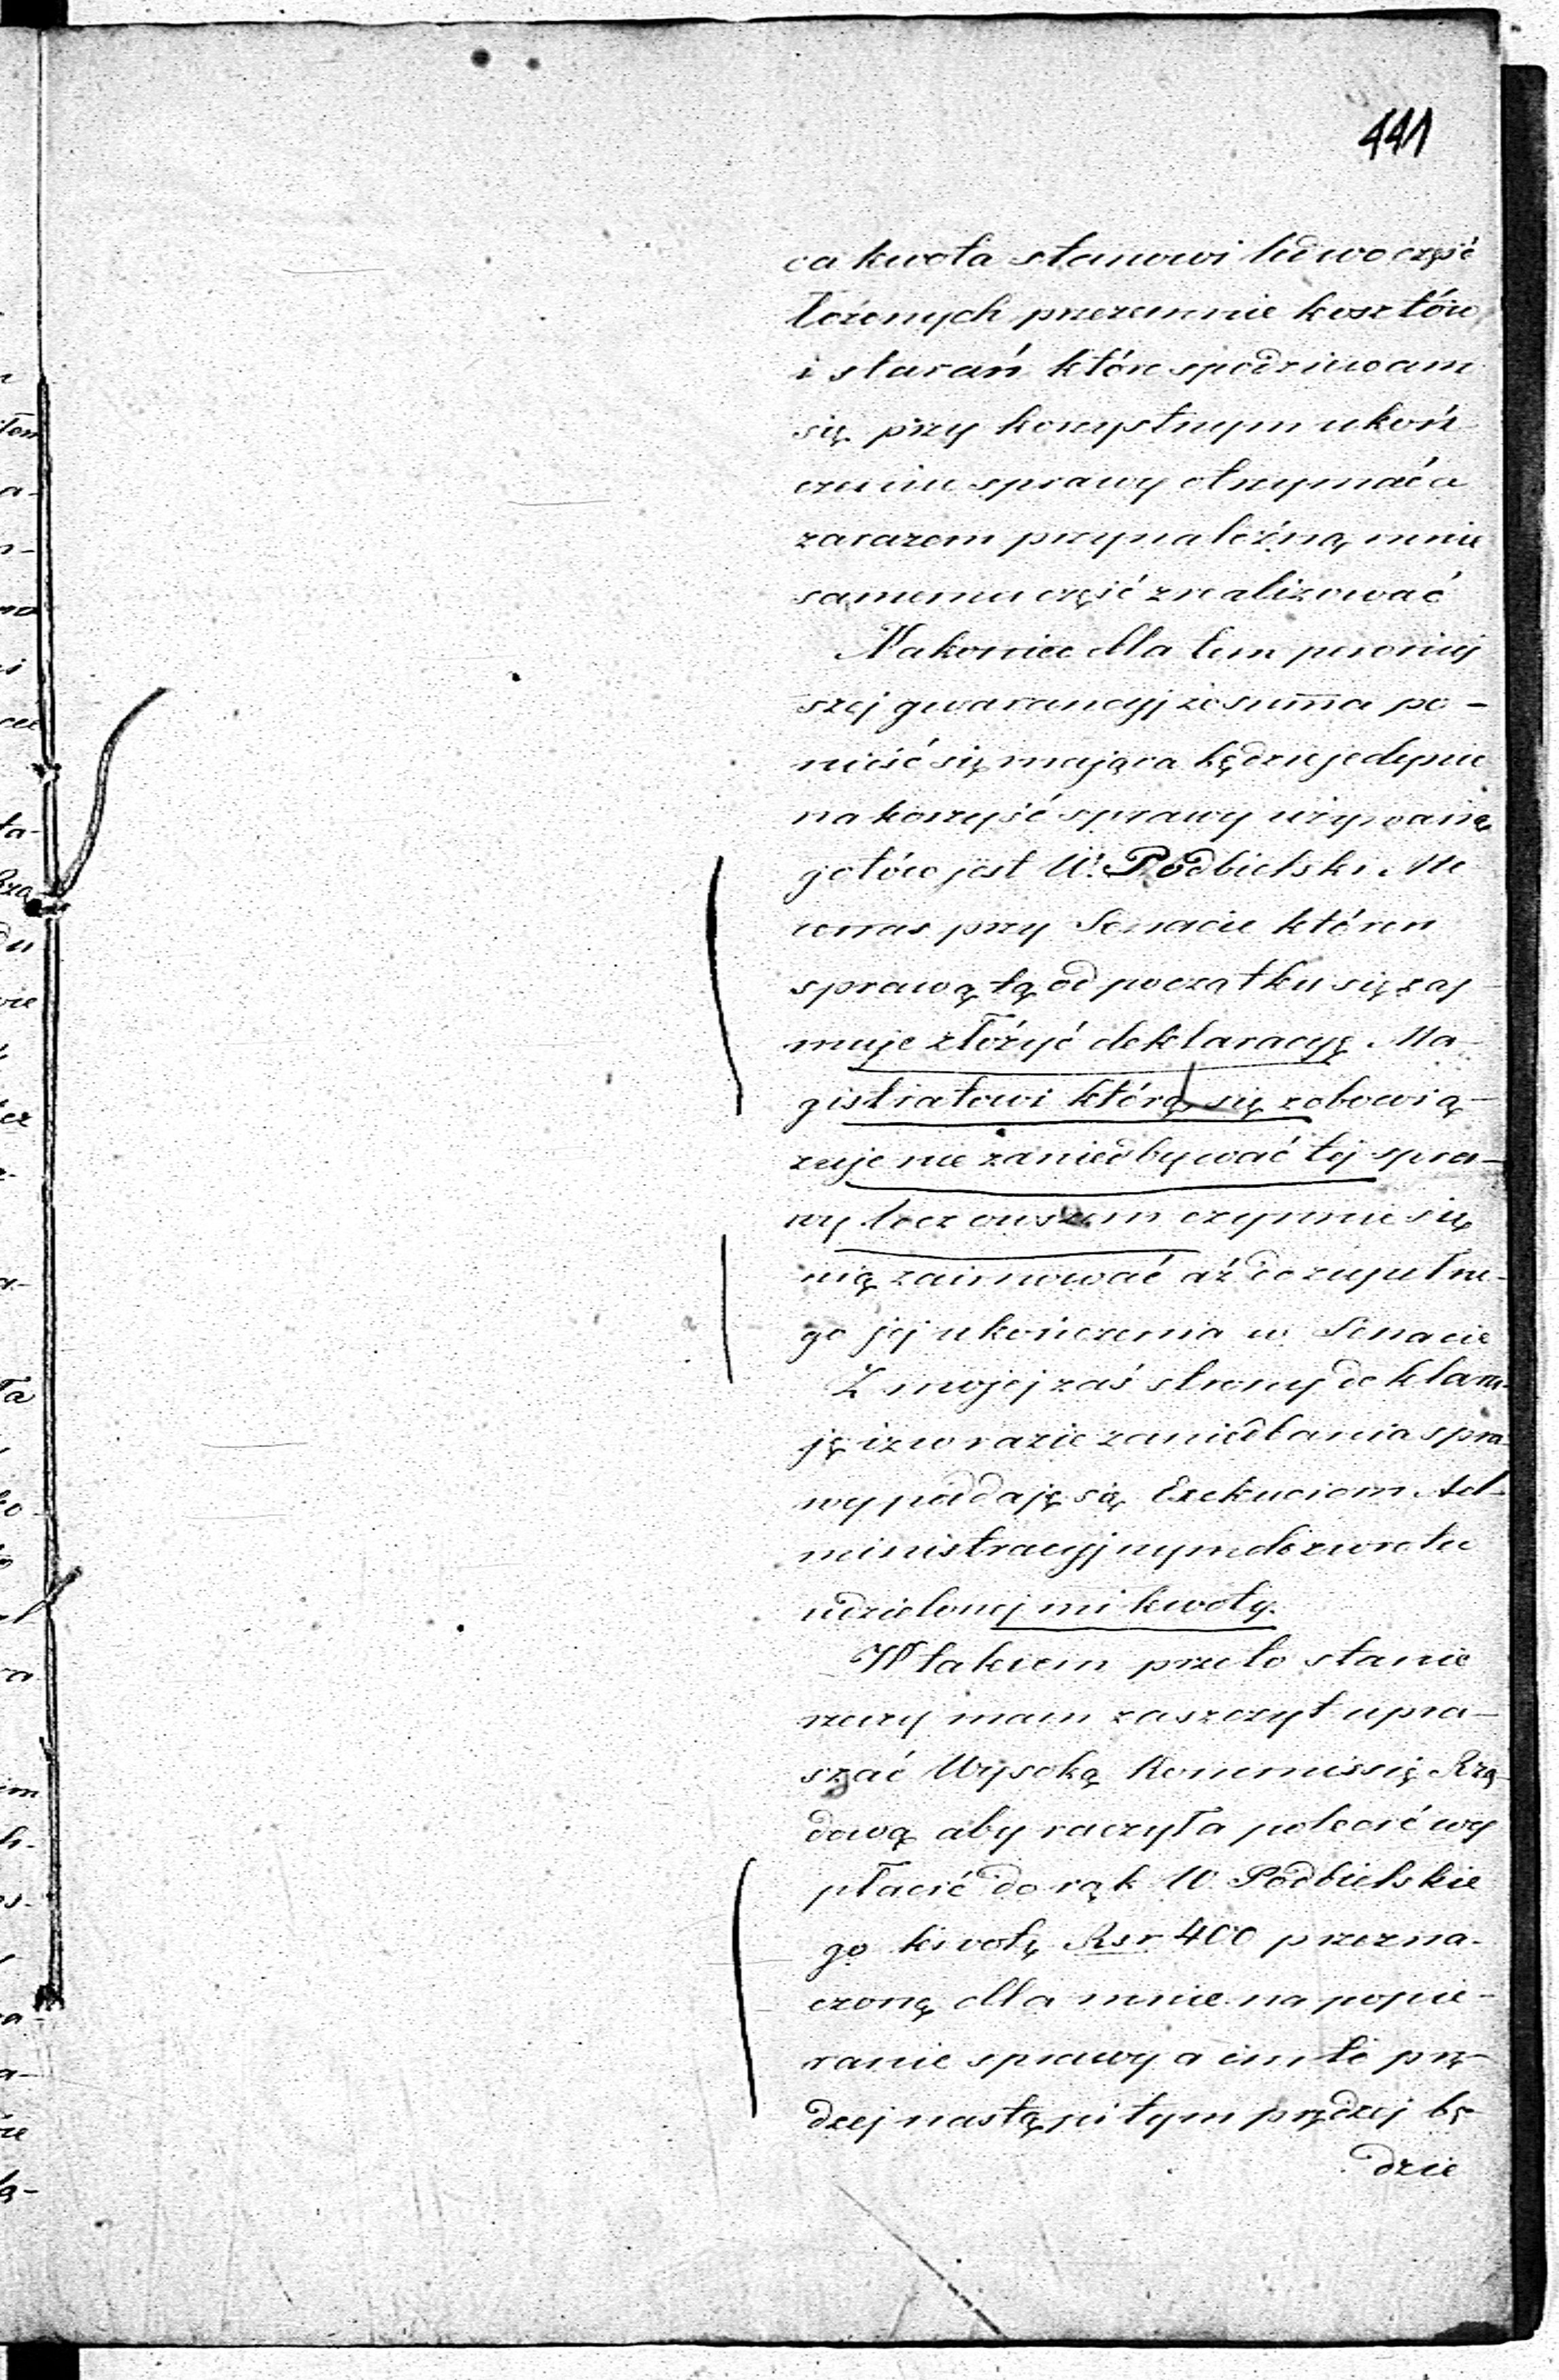 441
ca kwota stanowi ledwo część
łożonych przezemnie kosztów
i starań które spodziewam
się przy korzystnym ukoń
czeniu sprawy otrzymać a
zarazem przynależną mnie
samemu część zrealizować
Nakoniec dla tem pewniej
szej gwarancyj że summa po-
nieść się mająca będzie jedynie
na korzyść sprawy używaną
gotów jest W. Podbielski Me
cenas przy Senacie któren
sprawą tą od początku się zaj
muje złożyć deklaracyę Ma-
gistratowi którą się zobowią-
zuje nie zaniedbywać tej spra-
wy lecz owszem czynnie się
nią zaimować aż do zupełne-
go jej ukończenia w Senacie
Z mojej zaś strony deklaru-
ję iż w razie zaniedbania spra-
wy poddaję się Exekuciom Ad-
ministracyjnym do zwrotu
udzielonej mi kwoty.
W takiem przeto stanie
rzeczy mam zaszczyt upra-
szać Wysoką Kommissię Rzą-
dową aby raczyła polecić wy
płacić do rąk W. Podbielskie
go kwotę Rsr 400 przezna-
czoną dla mnie na popie-
ranie sprawy a im to prę-
dzej nastąpi tym prędzej bę-
dzie